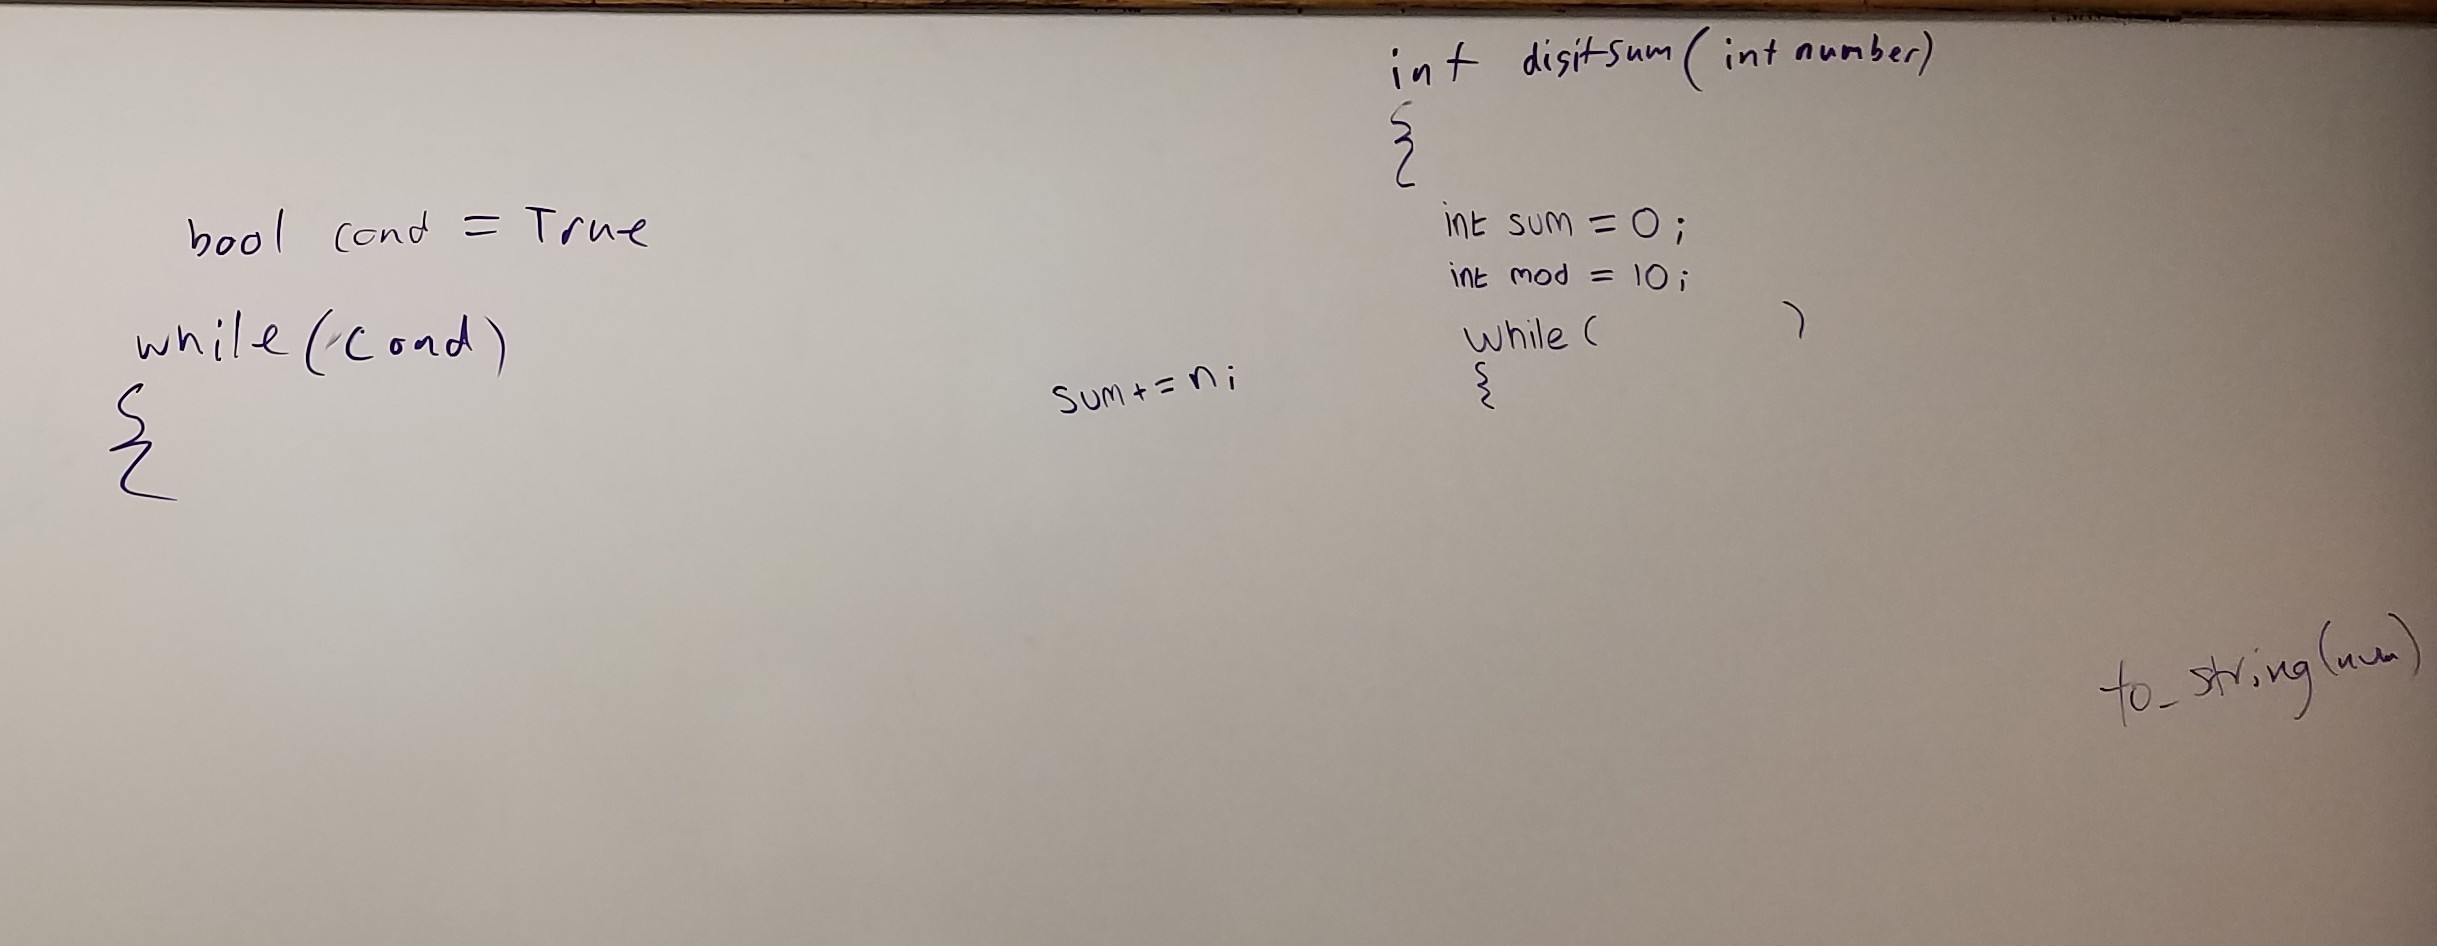 bool cond = True
while (cond)
{
sum += n;
int digitsum (int number)
{
int sum = 0;
int mod = 10;
while ( )
{
to_string(num)